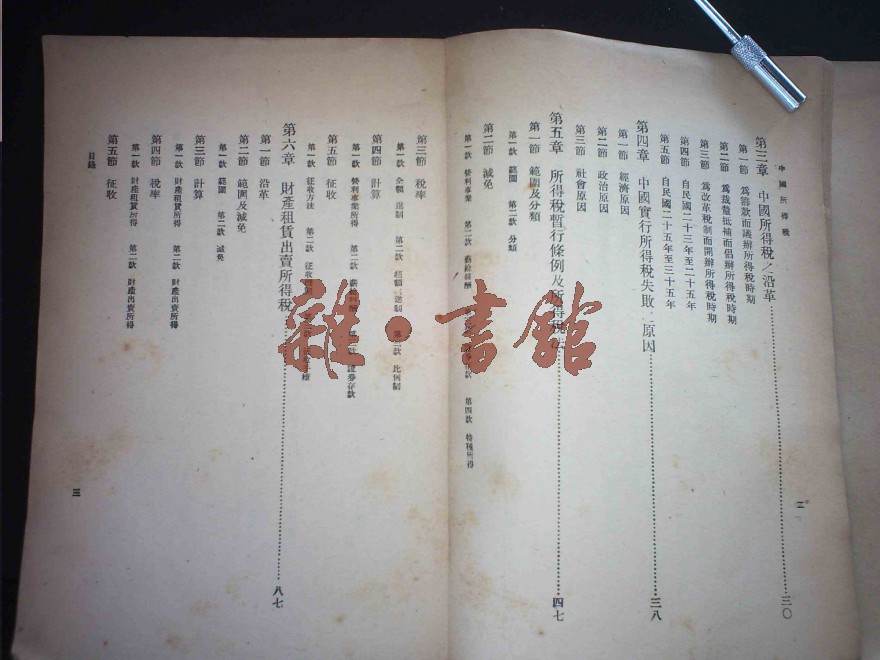 中國所得稅
二
第三章 中國所得稅之沿革 三〇
第一節 爲籌款而議辦所得稅時期
第二節 爲裁釐抵補而倡辦所得稅時期
第三節 爲改革稅制而開辦所得稅時期
第四節 自民國二十三年至二十五年
第五節 自民國二十五年至三十五年
第四章 中國實行所得稅失敗 原因 三八
第一節 經濟原因
第二節 政治原因
第三節 社會原因
第五章 所得稅暫行條例及所得稅法 四七
第一節 範圍及分類
第一款 範圍 第二款 分類
第二節 減免
第一款 營利事業 第二款 薪給報酬 存款 第四款 特種所得
第三節 稅率
第一款 全額 進制 第二款 超額 進制 第三款 比例制
第四節 計算
第一款 營利事業所得 第二款 薪給報酬 證券存款
第五節 征收
第一款 征收方法 第二款 征收
第六章 財產租賃出賣所得稅 八七
第一節 沿革
第二節 範圍及減免
第一款 範圍 第二款 減免
第三節 計算
第一款 財產租賃所得 第二款 財產出賣所得
第四節 稅率
第一款 財產租賃所得 第二款 財產出賣所得
第五節 征收
目錄
三
雜·書館